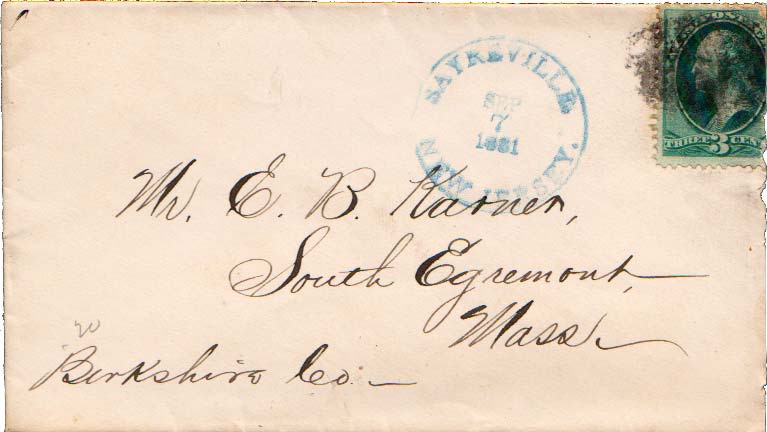 SAYREVILLE,
SEP
7
1881
NEW JERSEY.
THREE 3 CENT
Mr. E. B. Karner,
South Egremont,
Mass.
Berkshire Co.